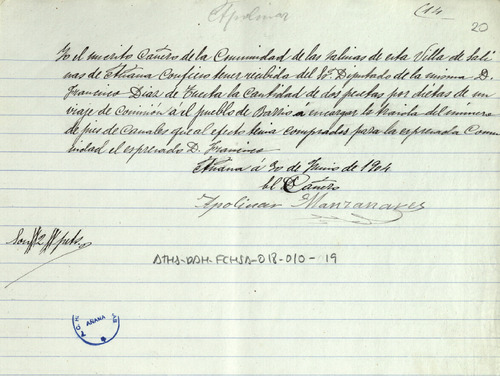 Apolinar
C14
20
Yo el inscrito Cañero de la Comunidad de las Salinas de esta Villa de Sali
nas de Añana Confieso tener recibida del Sr. Diputado de la misma D.
Francisco Diaz de Tuesta la Cantidad de dos pesetas por dietas de un
viaje de Comisión á el pueblo de Barrio a encargar la traida del número
de pies de Canales que al efecto tenia comprados para la espresada Comu
nidad el espresado D. Francisco
Añana á 30 de Junio de 1904
El Cañero
Apolinar Manzanares
Son #2# pets.
ATHA-DAH-FCHSA-018-010-19
AÑANA